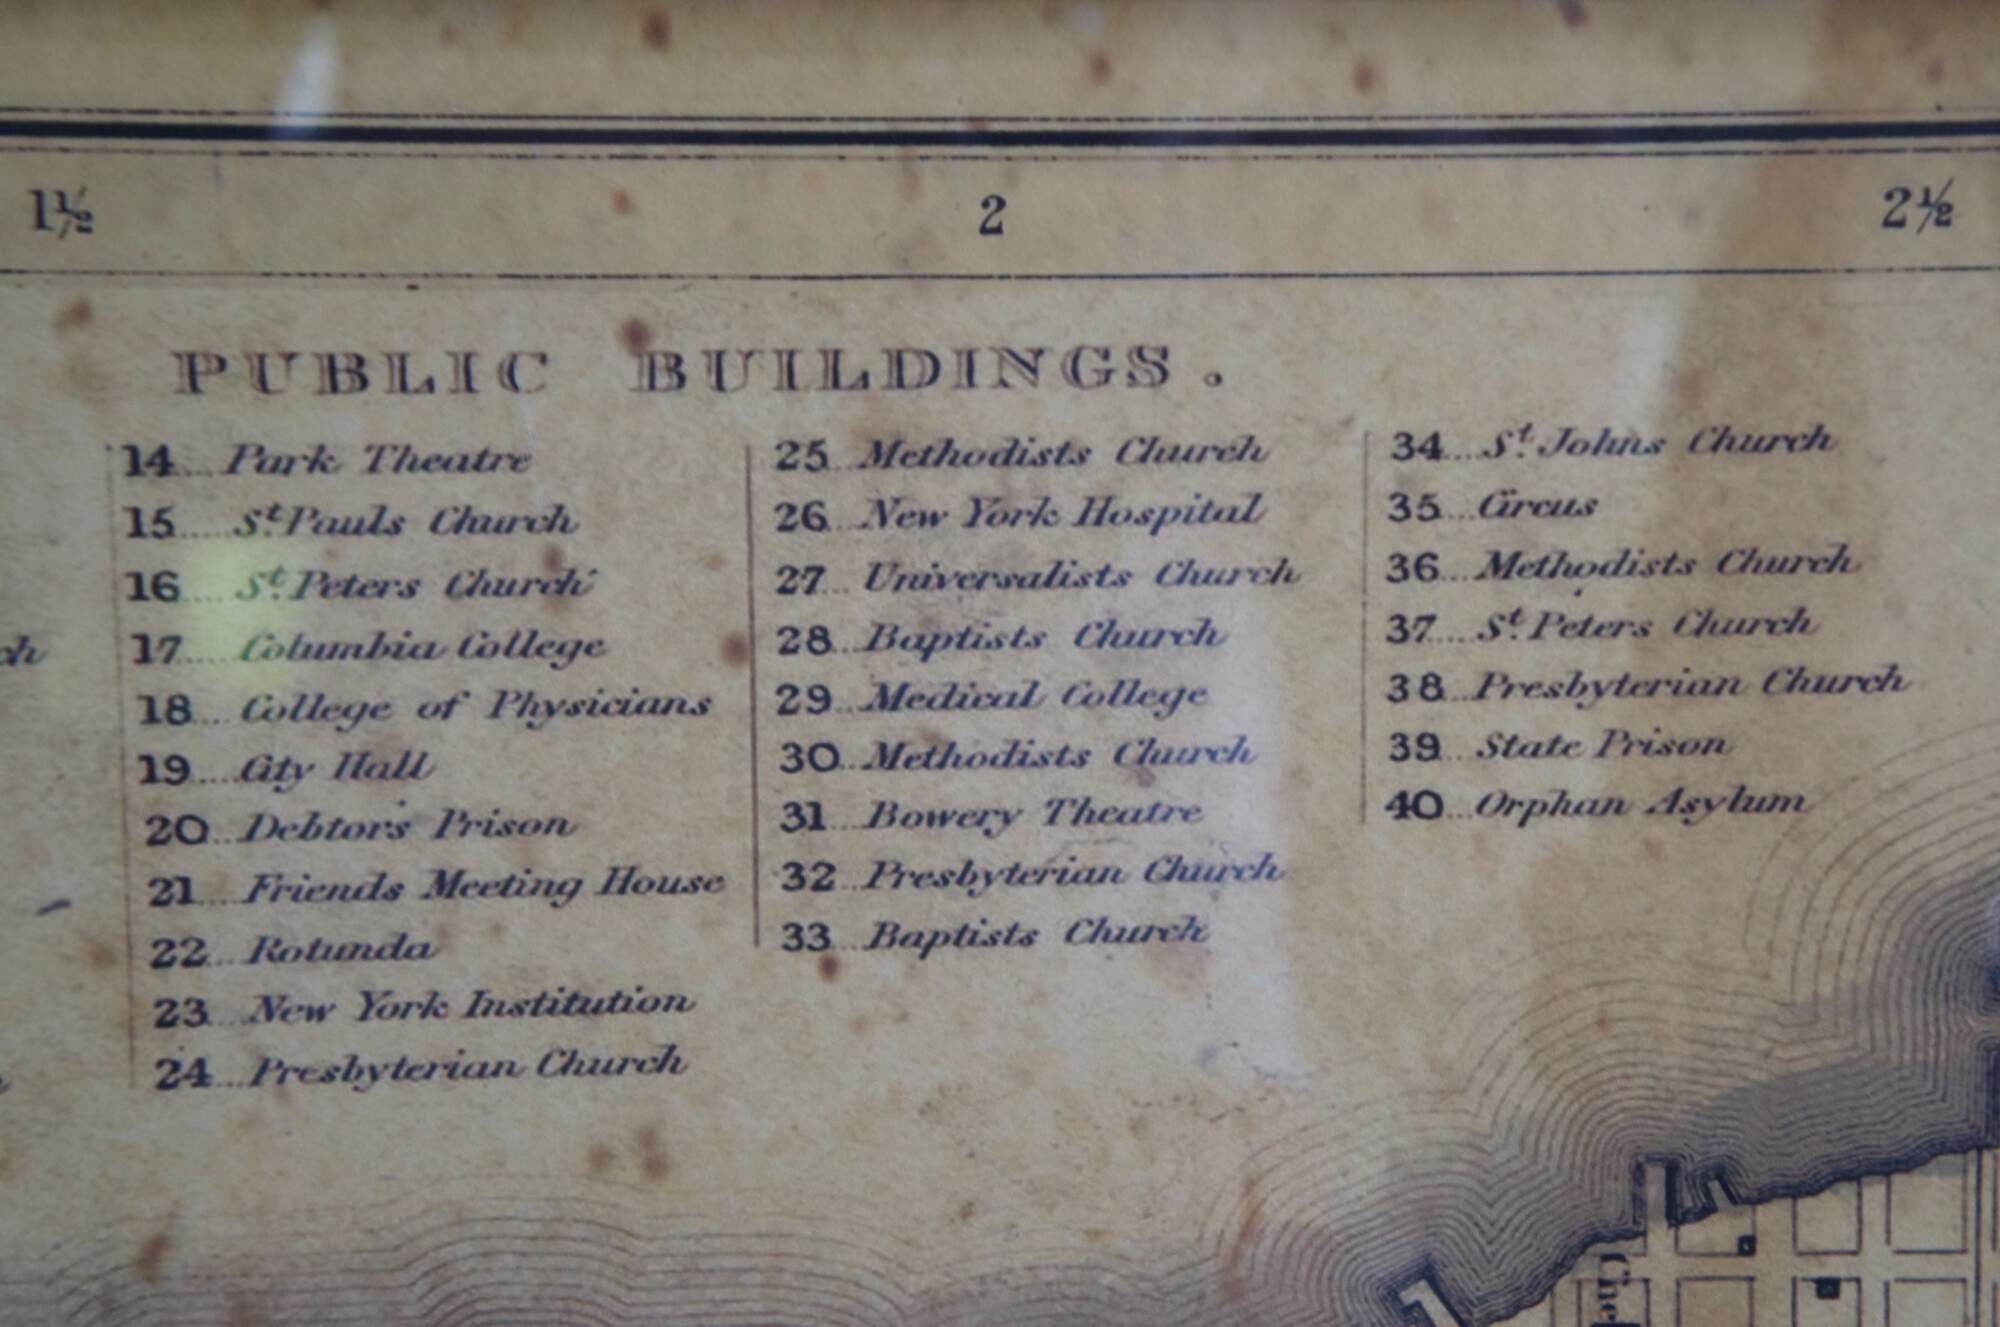 1½ 2 2½
PUBLIC BUILDINGS.
14.... Park Theatre
15..... St. Pauls Church
16.... St. Peters Church
17..... Columbia College
18... College of Physicians
19.... City Hall
20... Debtors Prison
21.... Friends Meeting House
22... Rotunda
23... New York Institution
24... Presbyterian Church
25... Methodists Church
26... New York Hospital
27... Universalists Church
28... Baptists Church
29... Medical College
30... Methodists Church
31... Bowery Theatre
32... Presbyterian Church
33... Baptists Church
34... St. Johns Church
35... Circus
36... Methodists Church
37.... St. Peters Church
38... Presbyterian Church
39... State Prison
40... Orphan Asylum